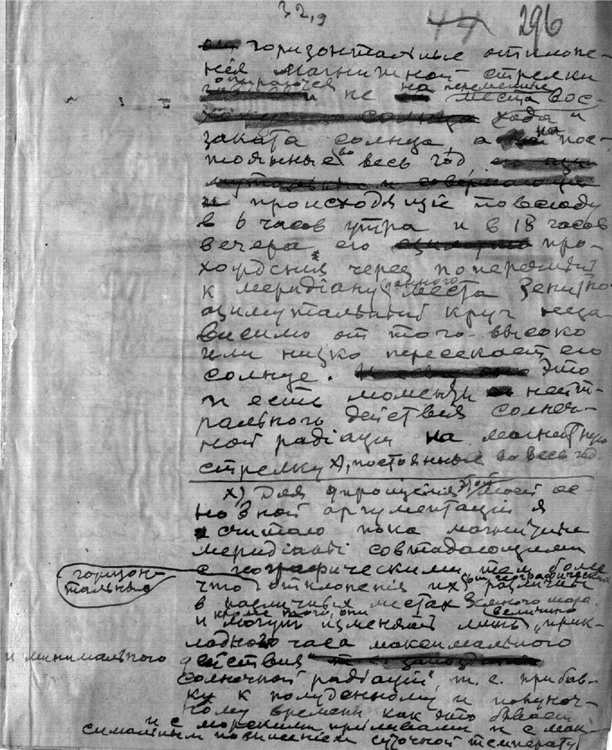 32,9
44 296
горизонтальные отклоне-
ния магнитной стрелки
опираются на переменные
и не места вос-
хода и
заката солнца, а на пос-
тоянные во весь год
и происходящие повсюду
в 6 часов утра и в 18 часов
вечера его про-
хождения через поперечный
к меридиану данного места зенитно
азимутальный круг неза-
висимо от того высоко
или низко пересекает его
солнце. Это
и есть моменты нейт-
рального действия солнеч-
ной радиации на магнитную
стрелку х), постоянные во весь год.
х) Для упрощения этой моей ос
новной аргументации я
считаю пока магнитные
меридианы совпадающими
с географическими тем более
что отклонения их от географических различны
горизон-
тальные
в различных местах земного шара,
и кроме того, они
могут изменять лишь величину „прик-
ладного часа максимального
и минимального
действия
солнечной радиации, т. е. прибав-
ку к полуденному и полуноч-
ному времени как это бывает
и с морскими приливами и с мак-
симальным повышением суточной температу